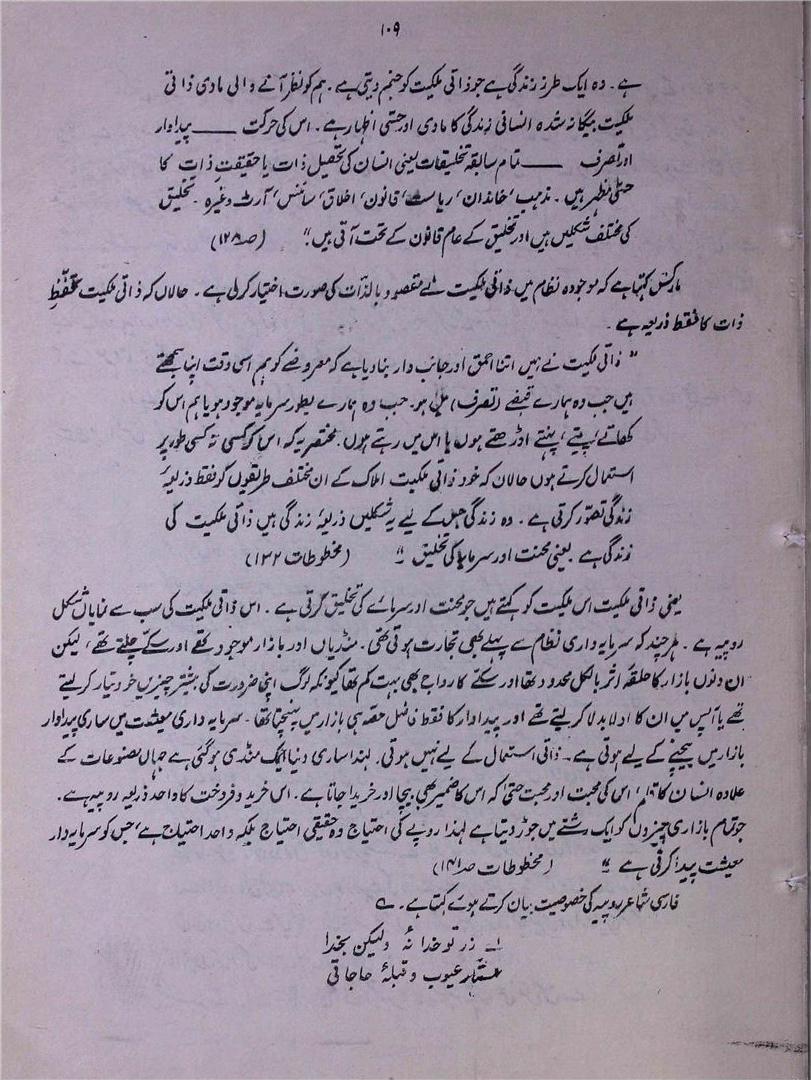 ۱۰۹
ہے۔ وہ ایک طرز زندگی ہے جو ذاتی ملکیت کو جنم دیتی ہے۔ ہم کو نظر آنے والی مادی ذاتی
ملکیت بیگانہ شدہ انسانی زندگی کا مادی اور حسّی اظہار ہے۔ اس کی حرکت ——— پیداوار
اور تصرف ——— تمام سابقہ تخلیقات یعنی انسان کی تحصیل ذات یا حقیقتِ ذات کا
حسّی مظہر ہیں۔ مذہب، خاندان، ریاست، قانون، اخلاق، سائنس، آرٹ وغیرہ۔ تخلیق
کی مختلف شکلیں ہیں اور تخلیق کے عام قانون کے تحت آتی ہیں۔" (صہ ۱۲۸)
مارکس کہتا ہے کہ موجودہ نظام میں ذاتی ملکیت نے مقصود بالذات کی صورت اختیار کر لی ہے۔ حالاں کہ ذاتی ملکیت تحفّظِ
ذات کا فقط ذریعہ ہے۔
" ذاتی ملکیت نے ہمیں اتنا احمق اور جانب دار بنا دیا ہے کہ معروضے کو ہم اسی وقت اپنا سمجھتے
ہیں جب وہ ہمارے قبضے (تصرف) میں ہو۔ جب وہ ہمارے بطور سرمایہ موجود ہو یا ہم اس کو
کھاتے، پیتے، پہنتے اوڑھتے ہوں یا اس میں رہتے ہوں۔ مختصر یہ کہ اس کو کسی نہ کسی طور پر
استعمال کرتے ہوں حالاں کہ خود ذاتی ملکیت املاک کے ان مختلف طریقوں کو فقط ذریعۂ
زندگی تصوّر کرتی ہے۔ وہ زندگی جس کے لیے یہ شکلیں ذریعۂ زندگی ہیں ذاتی ملکیت کی
زندگی ہے یعنی محنت اور سرمایہ کی تخلیق۔" (مخطوطات ۱۳۲)
یعنی ذاتی ملکیت اس ملکیت کو کہتے ہیں جو محنت اور سرمائے کی تخلیق کرتی ہے۔ اس ذاتی ملکیت کی سب سے نمایاں شکل
روپیہ ہے۔ ہر چند کہ سرمایہ داری نظام سے پہلے بھی تجارت ہوتی تھی۔ منڈیاں اور بازار موجود تھے اور سکّے چلتے تھے، لیکن
ان دنوں بازار کا حلقۂ اثر بالکل محدود تھا اور سکّے کا رواج بھی بہت کم تھا کیونکہ لوگ اپنی ضرورت کی بیشتر چیزیں خود تیار کر لیتے
تھے یا آپس میں ان کا ادلا بدلا کر لیتے تھے اور پیداوار کا فقط فاضل حصّہ ہی بازار میں پہنچتا تھا۔ سرمایہ داری معیشت میں ساری پیداوار
بازار میں بیچنے کے لیے ہوتی ہے۔ ذاتی استعمال کے لیے نہیں ہوتی۔ لہٰذا ساری دنیا ایک منڈی ہو گئی ہے جہاں مصنوعات کے
علاوہ انسان کا اس کی محنت اور محبت حتیٰ کہ اس کا ضمیر بھی بیچا اور خریدا جاتا ہے۔ اس خرید و فروخت کا واحد ذریعہ روپیہ ہے۔
جو تمام بازاری چیزوں کو ایک رشتے میں جوڑ دیتا ہے لہٰذا روپے کی احتیاج وہ حقیقی احتیاج بلکہ واحد احتیاج ہے، جس کو سرمایہ دار
معیشت پیدا کرتی ہے۔" (مخطوطات صہ ۱۴۱)
فارسی شاعر روپیہ کی خصوصیت بیان کرتے ہوئے کہتا ہے۔ ؎
اے زر تو خدا نۂ ولیکن بخدا
ستّارِ عیوب و قبلۂ حاجاتی